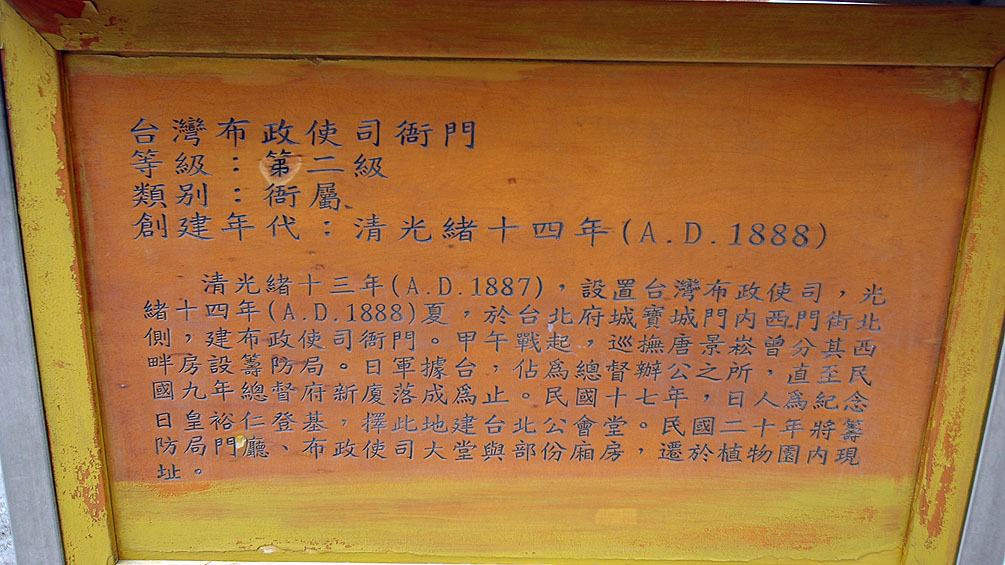 台灣布政使司衙門
等級：第二級
類别：衙屬
創建年代：清光緒十四年(A.D.1888)
清光緒十三年(A.D.1887)，設置台灣布政使司，光
緒十四年(A.D.1888)夏，於台北府城寶城門內西門街北
側，建布政使司衙門。甲午戰起，巡撫唐景崧曾分其西
畔房設籌防局。日軍據台，佔為總督辦公之所，直至民
國九年總督府新廈落成為止。民國十七年，日人為紀念
日皇裕仁登基，擇此地建台北公會堂。民國二十年將籌
防局門廳、布政使司大堂與部份廂房，遷於植物園內現
址。